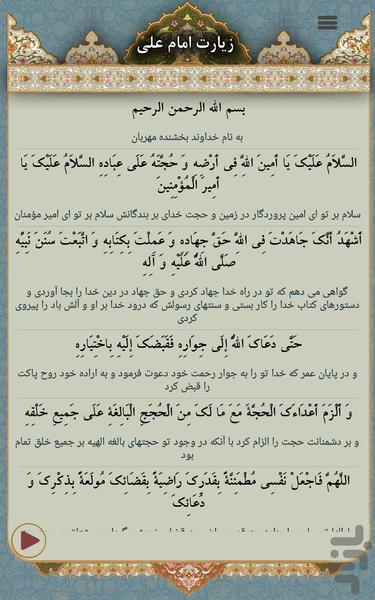 زیارت امام علی
بسم الله الرحمن الرحیم
به نام خداوند بخشنده مهربان
السَّلاَمُ عَلَيْكَ يَا أَمِينَ اللَّهِ فِي أَرْضِهِ وَ حُجَّتَهُ عَلَى عِبَادِهِ السَّلاَمُ عَلَيْكَ يَا
أَمِيرَ الْمُؤْمِنِينَ
سلام بر تو ای امین پروردگار در زمین و حجت خدای بر بندگانش سلام بر تو ای امیر مؤمنان
أَشْهَدُ أَنَّكَ جَاهَدْتَ فِي اللَّهِ حَقَّ جِهَادِهِ وَ عَمِلْتَ بِكِتَابِهِ وَ اتَّبَعْتَ سُنَنَ نَبِيِّهِ
صَلَّى اللَّهُ عَلَيْهِ وَ آلِهِ
گواهی می دهم که تو در راه خدا جهاد کردی و حق جهاد در دین خدا را بجا آوردی و
دستورهای کتاب خدا را کار بستی و سنتهای رسولش که درود خدا بر او و آلش باد را پیروی
کردی
حَتَّى دَعَاكَ اللَّهُ إِلَى جِوَارِهِ فَقَبَضَكَ إِلَيْهِ بِاخْتِيَارِهِ
و در پایان عمر که خدا تو را به جوار رحمت خود دعوت فرمود و به اراده خود روح پاکت
را قبض کرد
وَ أَلْزَمَ أَعْدَاءَكَ الْحُجَّةَ مَعَ مَا لَكَ مِنَ الْحُجَجِ الْبَالِغَةِ عَلَى جَمِيعِ خَلْقِهِ
و بر دشمنانت حجت را الزام کرد با آنکه در وجود تو حجتهای بالغه الهیه بر جمیع خلق تمام
بود
اللَّهُمَّ فَاجْعَلْ نَفْسِي مُطْمَئِنَّةً بِقَدَرِكَ رَاضِيَةً بِقَضَائِكَ مُولَعَةً بِذِكْرِكَ وَ
دُعَائِكَ
بازار